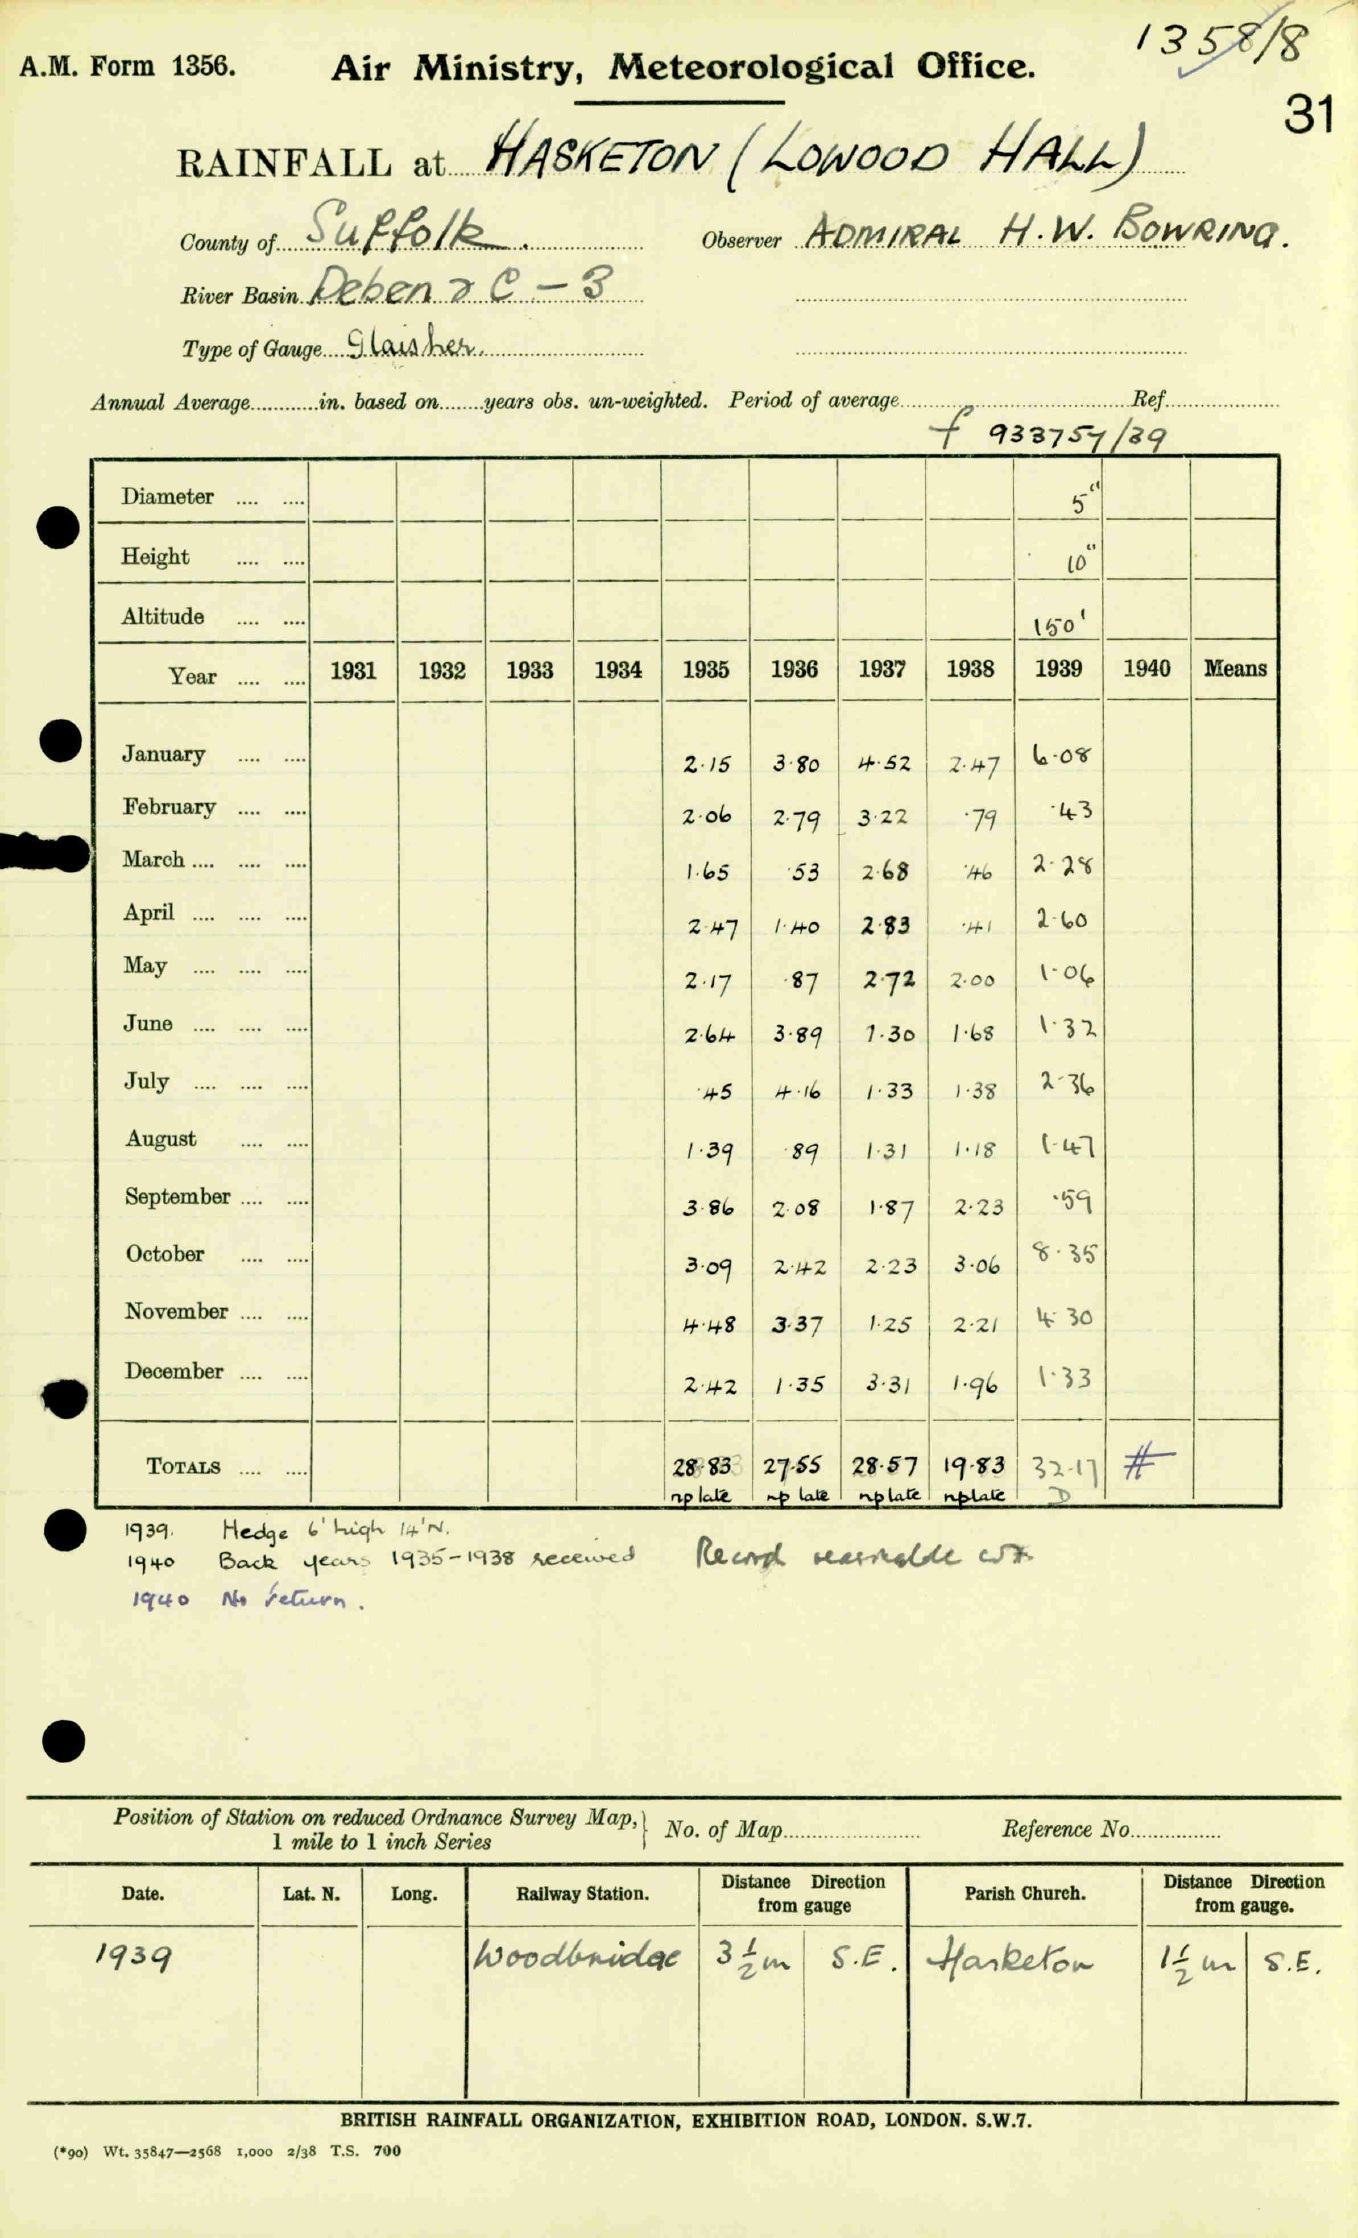 1358/8
A.M. Form 1356. Air Ministry, Meteorological Office.
31
RAINFALL at HASKETON (LOWOOD HALL)
County of Suffolk. Observer ADMIRAL H.W. BOWRING.
River Basin Deben & C - 3
Type of Gauge Glaisher.
Annual Average............in. based on........years obs. un-weighted. Period of average Ref.
f 933757/39
Diameter .... .... 5"
Height .... .... 10"
Altitude .... .... 150'
Year .... .... 1931 1932 1933 1934 1935 1936 1937 1938 1939 1940 Means
January .... .... 2·15 3·80 4·52 2·47 6·08
February .... .... 2·06 2·79 3·22 ·79 ·43
March .... .... .... 1·65 ·53 2·68 ·46 2·28
April .... .... .... 2·47 1·40 2·83 ·41 2·60
May .... .... .... 2·17 ·87 2·72 2·00 1·06
June .... .... .... 2·64 3·89 1·30 1·68 1·32
July .... .... .... ·45 4·16 1·33 1·38 2·36
August .... .... 1·39 ·89 1·31 1·18 1·47
September .... .... 3·86 2·08 1·87 2·23 ·59
October .... .... 3·09 2·42 2·23 3·06 8·35
November .... .... 4·48 3·37 1·25 2·21 4·30
December .... .... 2·42 1·35 3·31 1·96 1·33
TOTALS .... .... 28·83 27·55 28·57 19·83 32·17 #
np late np late np late np late D
1939. Hedge 6' high 14' N.
1940 Back years 1935-1938 received Record reasonable
1940 No return.
Position of Station on reduced Ordnance Survey Map, 1 mile to 1 inch Series } No. of Map Reference No.
Date. Lat. N. Long. Railway Station. Distance Direction from gauge Parish Church. Distance Direction from gauge.
1939 Woodbridge 3½ m S.E. Hasketon 1½ m S.E.
BRITISH RAINFALL ORGANIZATION, EXHIBITION ROAD, LONDON. S.W.7.
(*90) Wt. 35847—2568 1,000 2/38 T.S. 700